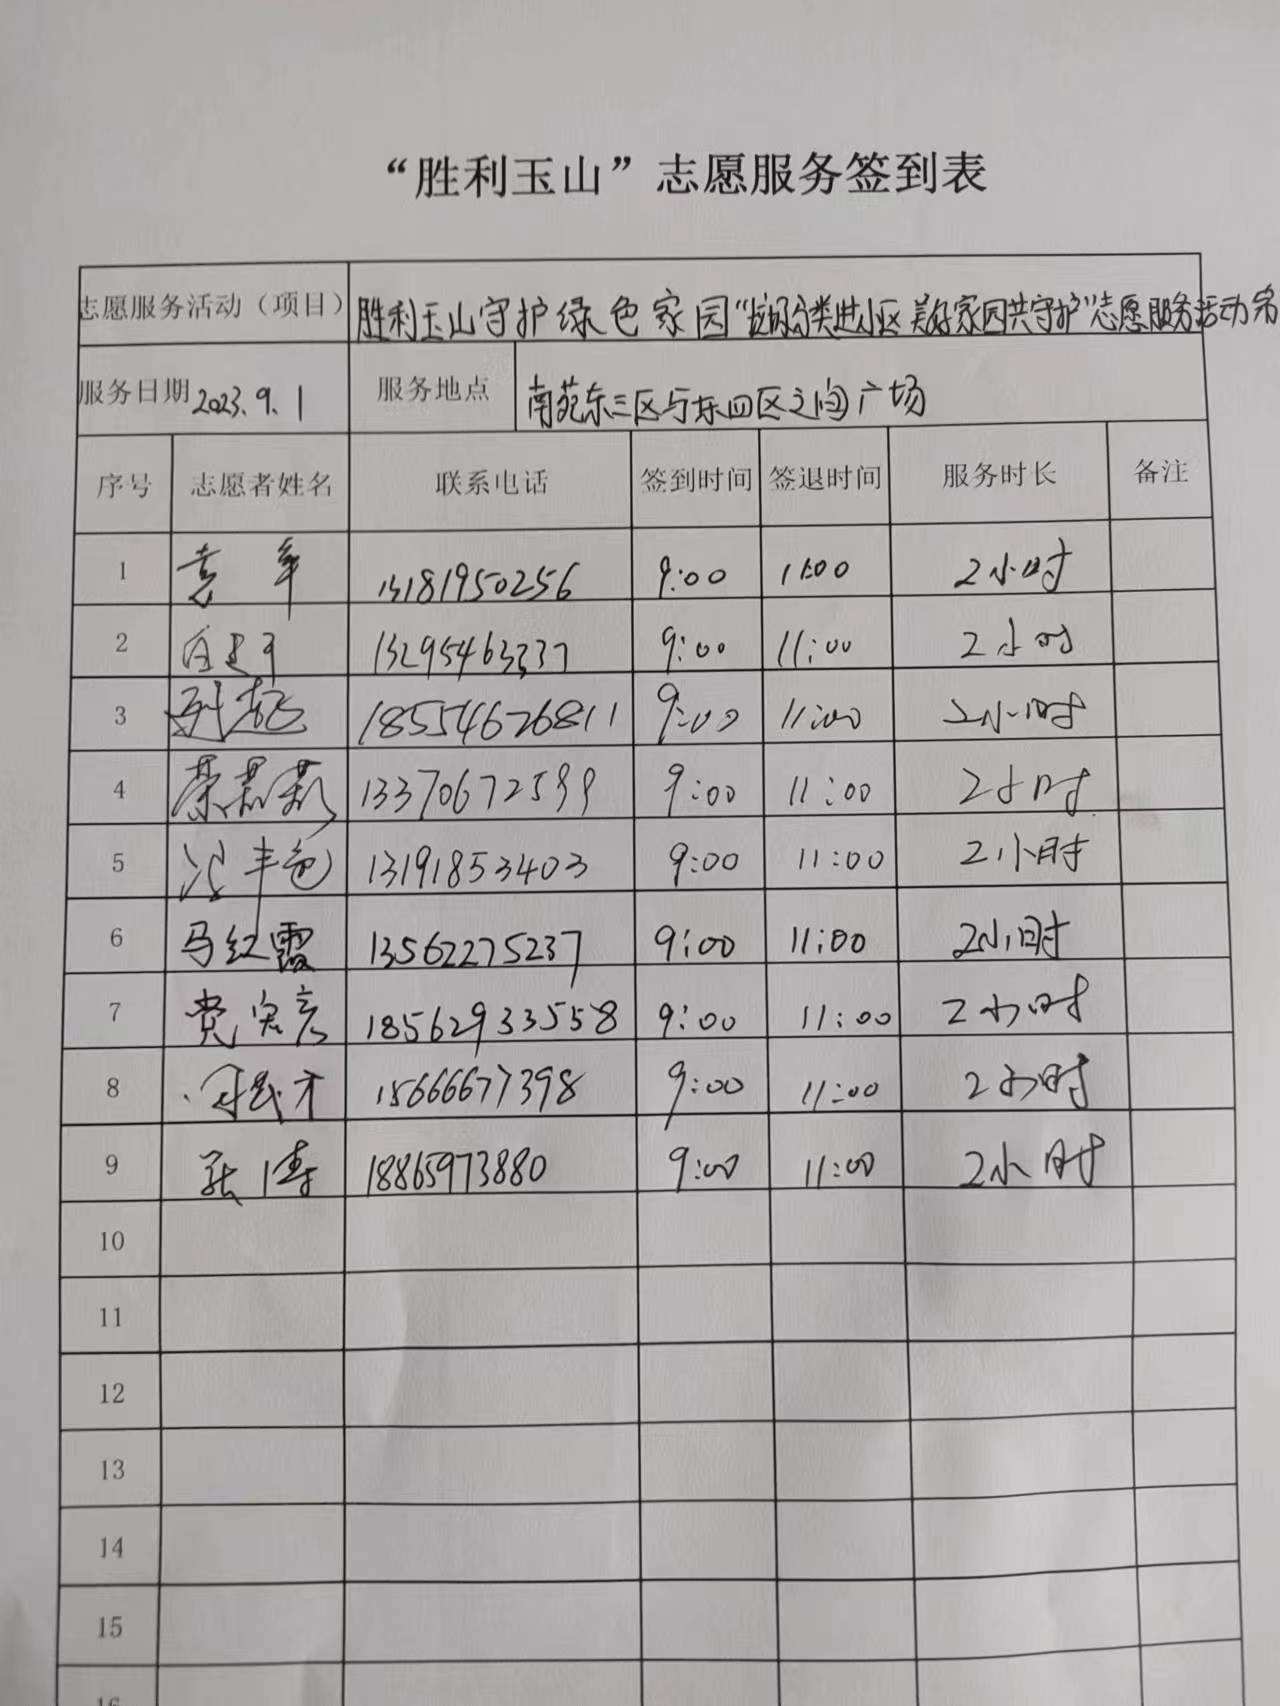 “胜利玉山”志愿服务签到表
志愿服务活动（项目） 胜利玉山守护绿色家园“垃圾分类进小区 美好家园共守护”志愿服务活动
服务日期 2023.9.1 服务地点 南苑东三区与东四区之间广场
序号 志愿者姓名 联系电话 签到时间 签退时间 服务时长 备注
1 袁军 13181950256 9:00 11:00 2小时
2 13295463337 9:00 11:00 2小时
3 18554626811 9:00 11:00 2小时
4 13370672599 9:00 11:00 2小时
5 13191853403 9:00 11:00 2小时
6 马红霞 13562275237 9:00 11:00 2小时
7 18562933558 9:00 11:00 2小时
8 15666677398 9:00 11:00 2小时
9 张涛 18865973880 9:00 11:00 2小时
10
11
12
13
14
15
16